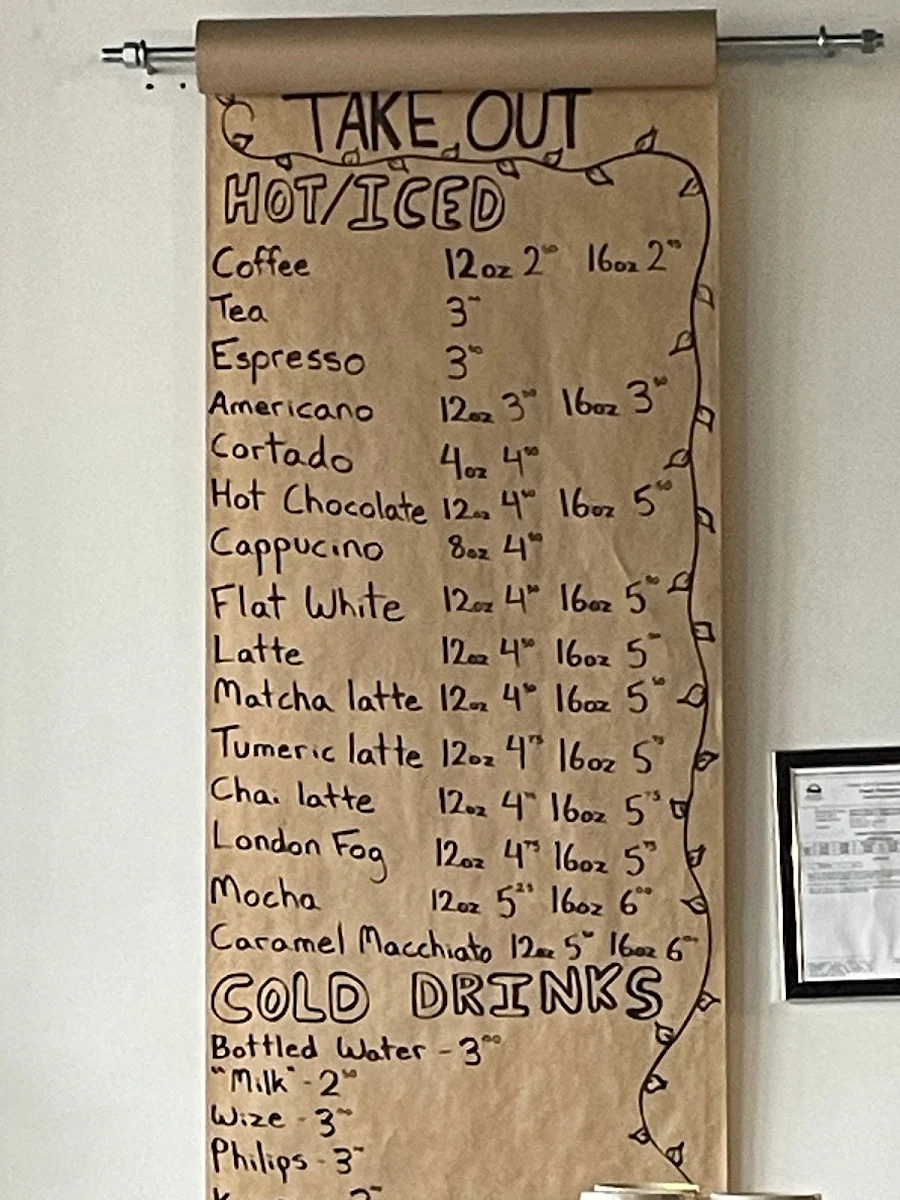 TAKE OUT
HOT/ICED
Coffee 12oz 2⁵⁰ 16oz 2⁷⁵
Tea 3
Espresso 3
Americano 12oz 3 16oz 3⁵⁰
Cortado 4oz 4⁰⁰
Hot Chocolate 12oz 4⁵⁰ 16oz 5⁵⁰
Cappucino 8oz 4⁵⁰
Flat White 12oz 4⁵⁰ 16oz 5⁵⁰
Latte 12oz 4⁵⁰ 16oz 5
Matcha latte 12oz 4⁵⁰ 16oz 5⁵⁰
Tumeric latte 12oz 4⁷⁵ 16oz 5⁷⁵
Chai latte 12oz 4⁷⁵ 16oz 5⁷⁵
London Fog 12oz 4⁷⁵ 16oz 5⁷⁵
Mocha 12oz 5²⁵ 16oz 6⁰⁰
Caramel Macchiato 12oz 5 16oz 6
COLD DRINKS
Bottled Water - 3⁰⁰
"Milk" - 2⁵⁰
Wize - 3
Philips - 3